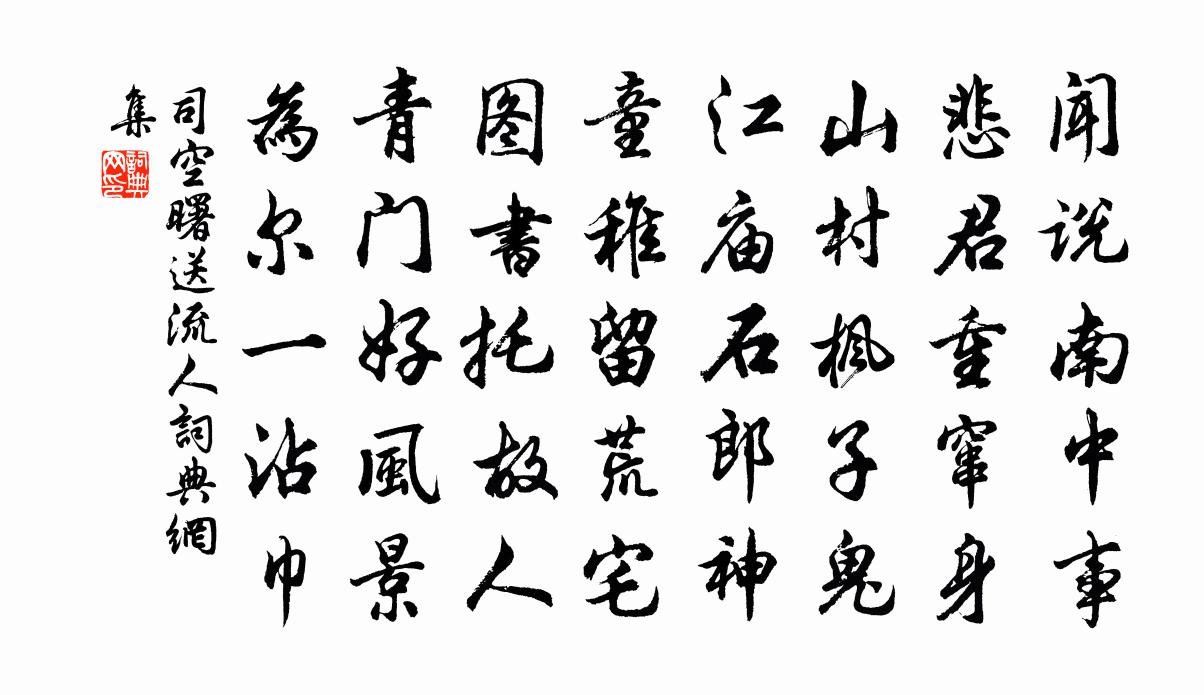 闻说南中事
悲君重窜身
山村枫子鬼
江庙石郎神
童稚留荒宅
图書托故人
青门好風景
為尔一沾巾
司空曙送流人詞典網
集
詞典网印